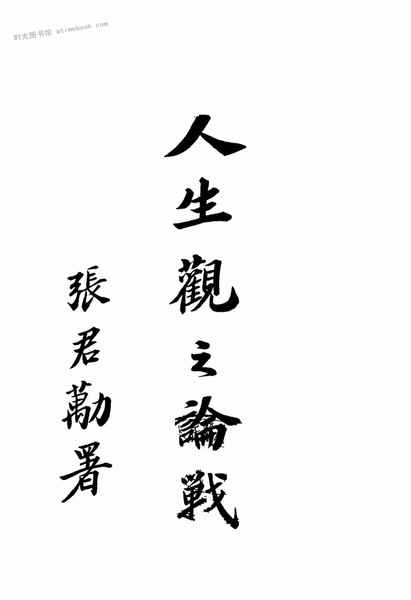 时光图书馆 atimebook.com
人生觀之論戰
張君勱署